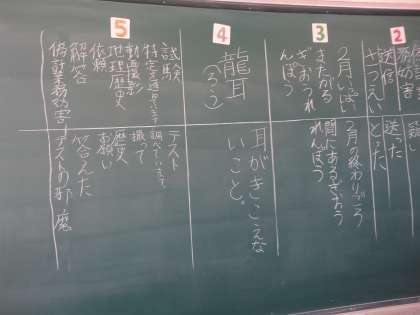 2
送信
送った
とった
3
2月いっぱい
またがる
ぎおうれ
んぽう
2月の終わりごろ
間にあるぎおう
れんぽう
4
龍耳
(ろう)
耳がきこえな
いこと。
5
試験
動画撮影
地理歴史
依頼
解答
偽計業務妨害
テスト
調べています。
撮って
歴史
お願い
答えた
テストの邪魔